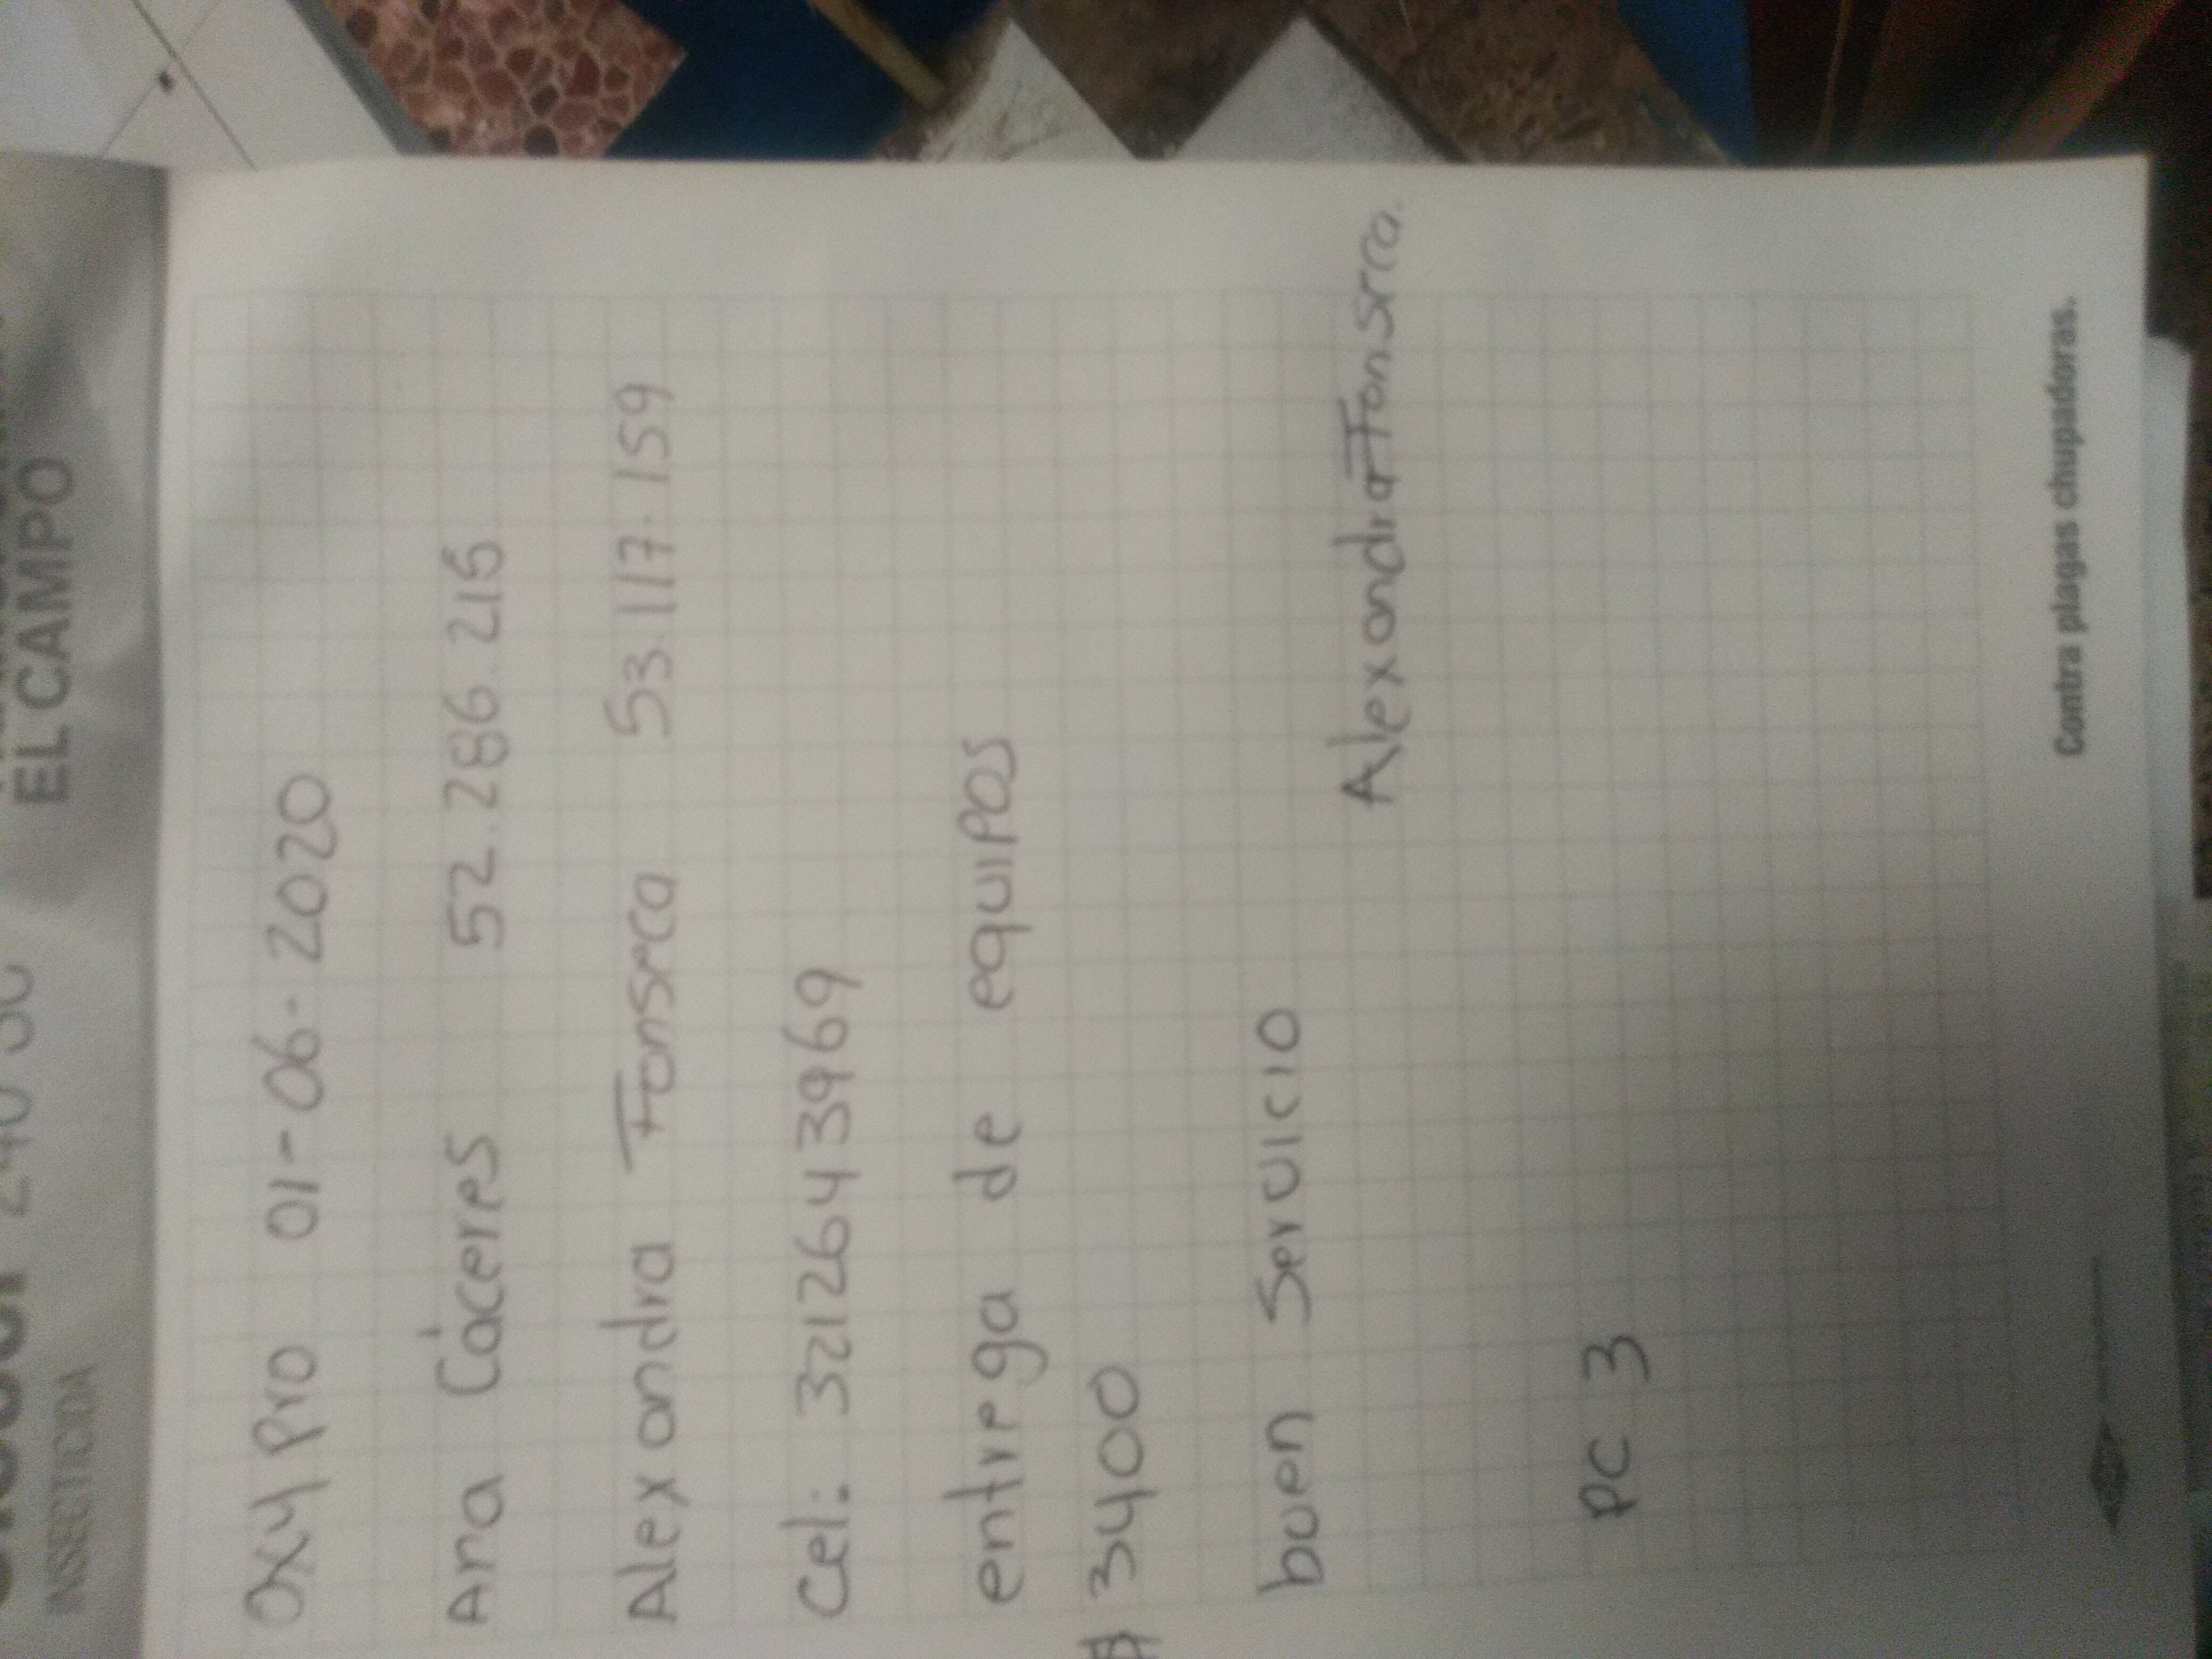 Oxy Pro 01-06-2020
Ana Cáceres 52.286.215
Alexandra Fonseca 53.117.159
Cel: 3212643969
entrega de equipos
$ 3400
buen Servicio
Alexandra Fonseca.
PC 3
Contra plagas chupadoras.
EL CAMPO